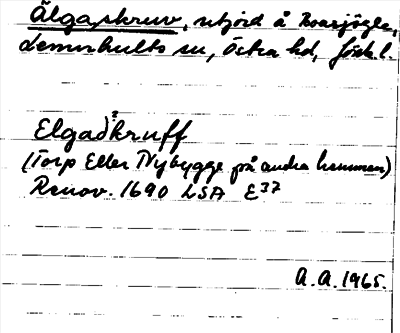 Älgaskruv, utjord å Roasjögle,
Lemnhults sn, Östra hd, Jönk. l.
Elgad?kruff
(Torp Eller Nybygge på andra hemman)
Renov. 1690 LSA E³⁷
A.A. 1965.